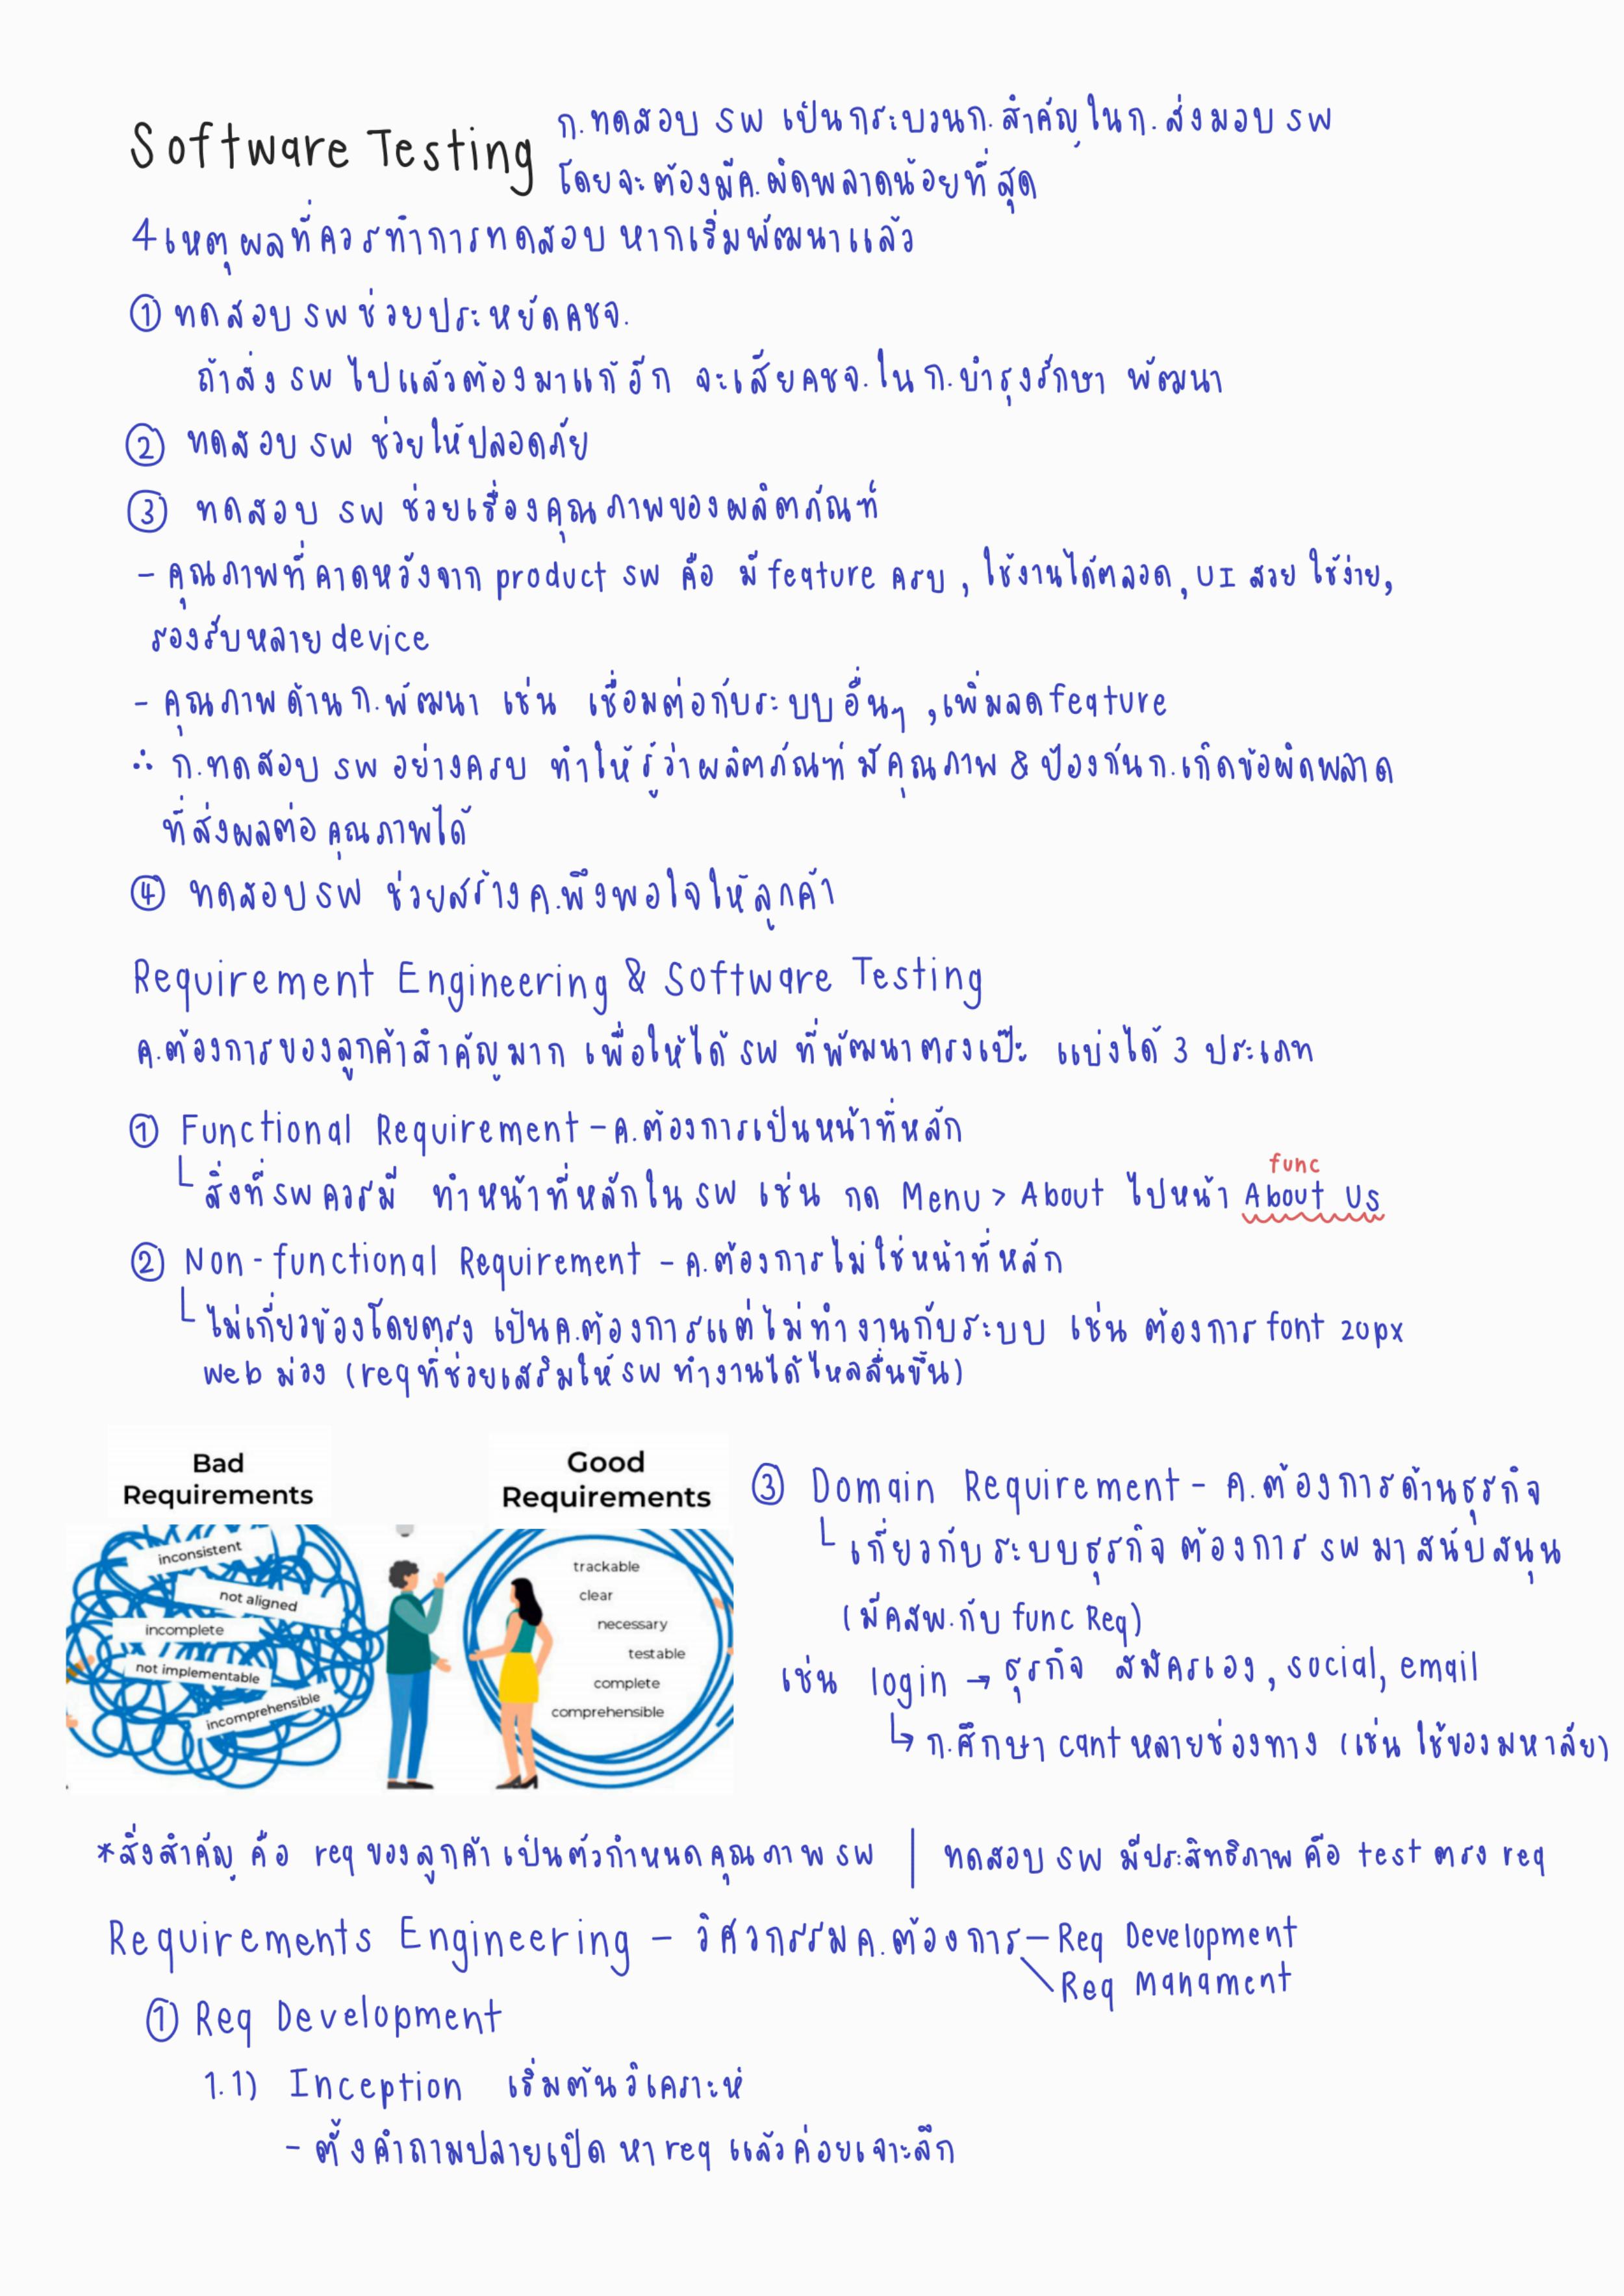 Software Testing
ก.ทดสอบ SW เป็นกระบวนก.สำคัญในก.ส่งมอบ SW
โดยจะต้องมีค.ผิดพลาดน้อยที่สุด
4 เหตุผลที่ควรทำการทดสอบ หากเริ่มพัฒนาแล้ว
① ทดสอบ SW ช่วยประหยัดคชจ.
ถ้าส่ง SW ไปแล้วต้องมาแก้อีก จะเสียคชจ.ใน ก.บำรุงรักษา พัฒนา
② ทดสอบ SW ช่วยให้ปลอดภัย
③ ทดสอบ SW ช่วยเรื่องคุณภาพของผลิตภัณฑ์
- คุณภาพที่คาดหวังจาก product SW คือ มี feature ครบ, ใช้งานได้ตลอด, UI สวย ใช้ง่าย,
รองรับหลาย device
- คุณภาพด้าน ก.พัฒนา เช่น เชื่อมต่อกับระบบอื่นๆ, เพิ่มลด feature
∴ ก.ทดสอบ SW อย่างครบ ทำให้รู้ว่าผลิตภัณฑ์ มีคุณภาพ & ป้องกันก.เกิดข้อผิดพลาด
ที่ส่งผลต่อ คุณภาพได้
④ ทดสอบ SW ช่วยสร้างค.พึงพอใจให้ลูกค้า
Requirement Engineering & Software Testing
ค.ต้องการของลูกค้าสำคัญมาก เพื่อให้ได้ SW ที่พัฒนาตรงเป๊ะ แบ่งได้ 3 ประเภท
① Functional Requirement - ค.ต้องการเป็นหน้าที่หลัก
func
สิ่งที่ SW ควรมี ทำหน้าที่หลักใน SW เช่น กด Menu > About ไปหน้า About Us
② Non-functional Requirement - ค.ต้องการไม่ใช่หน้าที่หลัก
ไม่เกี่ยวข้องโดยตรง เป็นค.ต้องการแต่ไม่ทำงานกับระบบ เช่น ต้องการ font 20px
web ม่วง (req ที่ช่วยเสริมให้ SW ทำงานได้ไหลลื่นขึ้น)
Bad
Requirements
inconsistent
not aligned
incomplete
not implementable
incomprehensible
Good
Requirements
trackable
clear
necessary
testable
complete
comprehensible
③ Domain Requirement - ค.ต้องการด้านธุรกิจ
เกี่ยวกับระบบธุรกิจ ต้องการ SW มาสนับสนุน
(มีคสพ.กับ func Req)
เช่น login → ธุรกิจ สมัครเอง, social, email
↳ ก.ศึกษา cant หลายช่องทาง (เช่น ใช้ของมหาลัย)
*สิ่งสำคัญ คือ req ของลูกค้า เป็นตัวกำหนดคุณภาพ SW | ทดสอบ SW มีประสิทธิภาพ คือ test ตรง req
Requirements Engineering - วิศวกรรมค.ต้องการ - Req Development
Req Manament
① Req Development
1.1) Inception เริ่มต้นวิเคราะห์
- ตั้งคำถามปลายเปิด หา req แล้วค่อยเจาะลึก